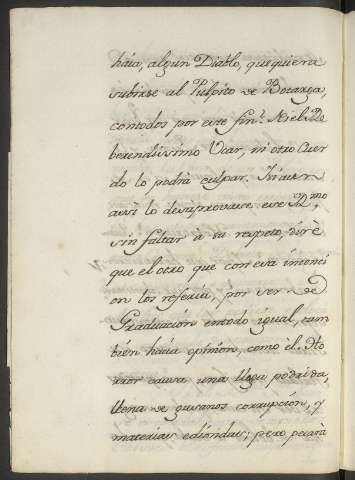 havia, algun Diablo, que quiera
subirse al Pulpito de Botarga,
contodos por este fin. Ni el Re
berendissimo Ucar, ni otro Cuer
do lo podrá culpar. Y si aun
assi lo desaprovase ese Rmo,
sin faltar à su respeto, dirè
que el otro que con esta intenci
on los referia, por ser de
Graduación entodo igual, tam
bién hacia opinión, como èl. Ho
rror causa una llaga podrida,
llena de gusanos corrupcion, y
materias ediondas; pero pecarà